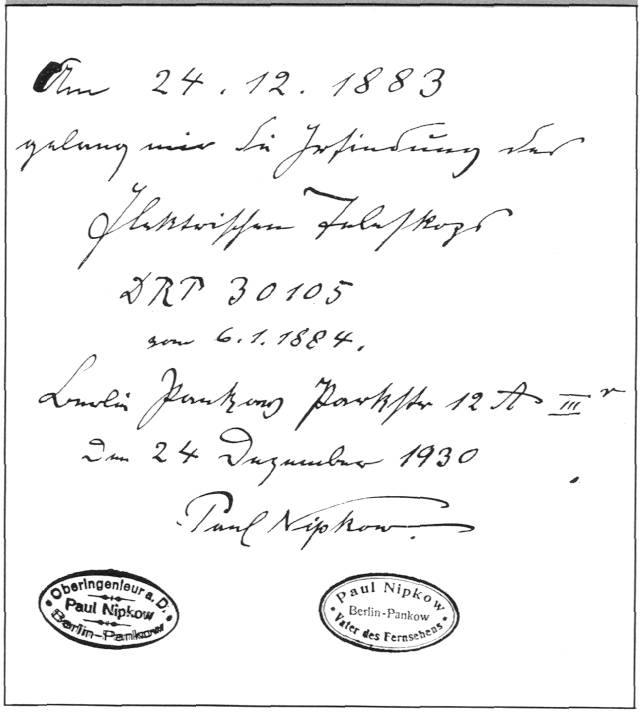 Am 24. 12. 1883
gelang mir die Erfindung des
Elektrischen Teleskops
DRP 30105
vom 6.1.1884.
Berlin Pankow Parkstr 12 A III r
Den 24 Dezember 1930
Paul Nipkow
Oberingenieur a. D.
Paul Nipkow
Berlin-Pankow
Paul Nipkow
Berlin-Pankow
Vater des Fernsehens